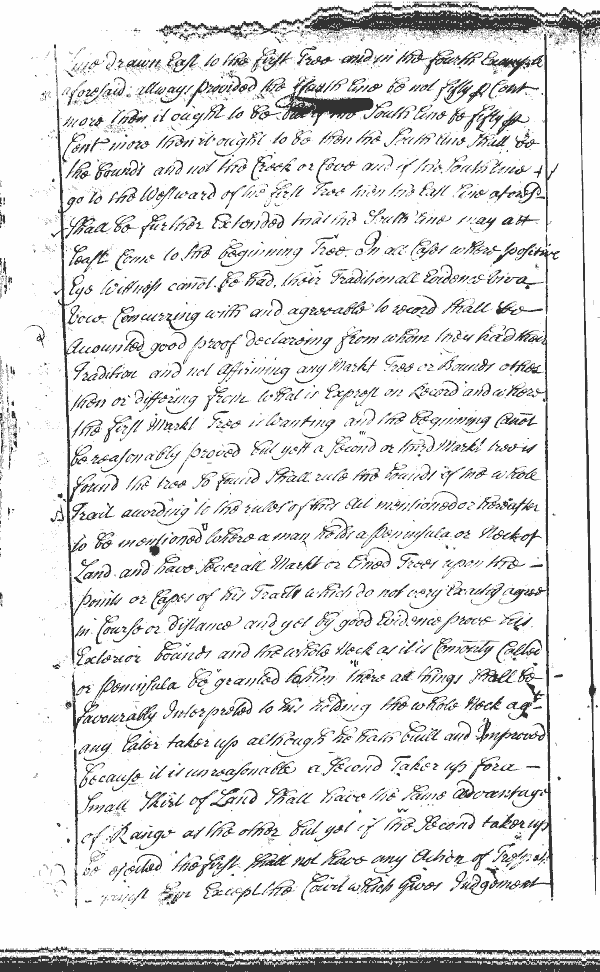 Line drawn East to the first Tree and in the fourth Example
aforesaid. allways provided the fourth line be not fifty p Cent
more then it ought to be but if the South line be fifty p
Cent more then it ought to be then the South line shall be
the bounds and not the Creek or Cove and if the South line
go to the Westward of the first Tree then the East line afores.d
Shall be further Extended that the South line may att
least Come to the beginning Tree. In all Cases where positive
Eye Wittness cannot be had, their Traditionall Evidence Viva
Voce Concurring with and agreeable to record Shall be
Accounted good proof declareing from whom they had their
Tradition and not Affirming any Markt Tree or Bounds other
then or differing from what is Exprest on Record and where
the first Markt Tree is Wanting and the beginning Cannot
be reasonably proved but yett a Second or third Markt tree is
found the tree So found Shall rule the bounds of the whole
Trail according to the rules of this Act mentioned or hereafter
to be mentioned where a man holds a Peninsula or Neck of
Land and have Severall Markt or Lined Trees upon the
points or Capes of his Tract which do not very Exactly agree
in Course or Distance and yet by good Evidence prove his
Exterior bounds and the whole Neck as it is Comonly Called
or Peninsula be granted to him there all things Shall be
favourably Interpreted to his holding the whole Neck ag.t
any Later taker up although he hath built and Improved
because it is unreasonable a Second Taker up for a
Small Skirt of Land Shall have the Same advantage
of Range as the other but yet if the Second taker up
be ejected the first Shall not have any Action of Trespass
him Except the Court which gives Judgement